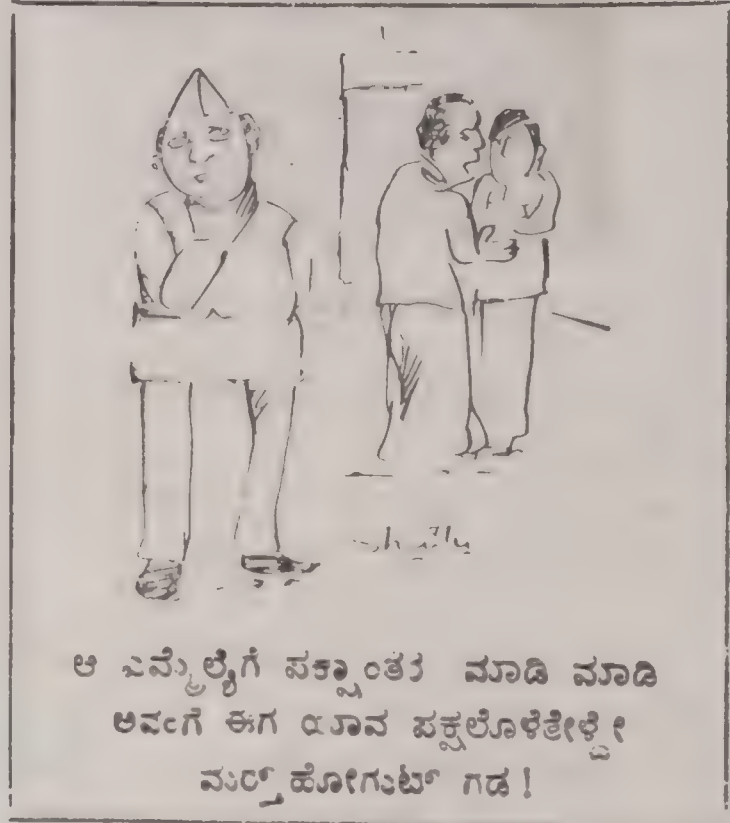 ಆ ಎಮ್ಮೆಲ್ಯೆಗೆ ಪಕ್ಷಾಂತರ ಮಾಡಿ ಮಾಡಿ
ಅವಂಗೆ ಈಗ ಯಾವ ಪಕ್ಷಲೊಳೆತೇಳ್ದೇ
ಮರ್ತ್ ಹೋಗುಟ್ ಗಡ !